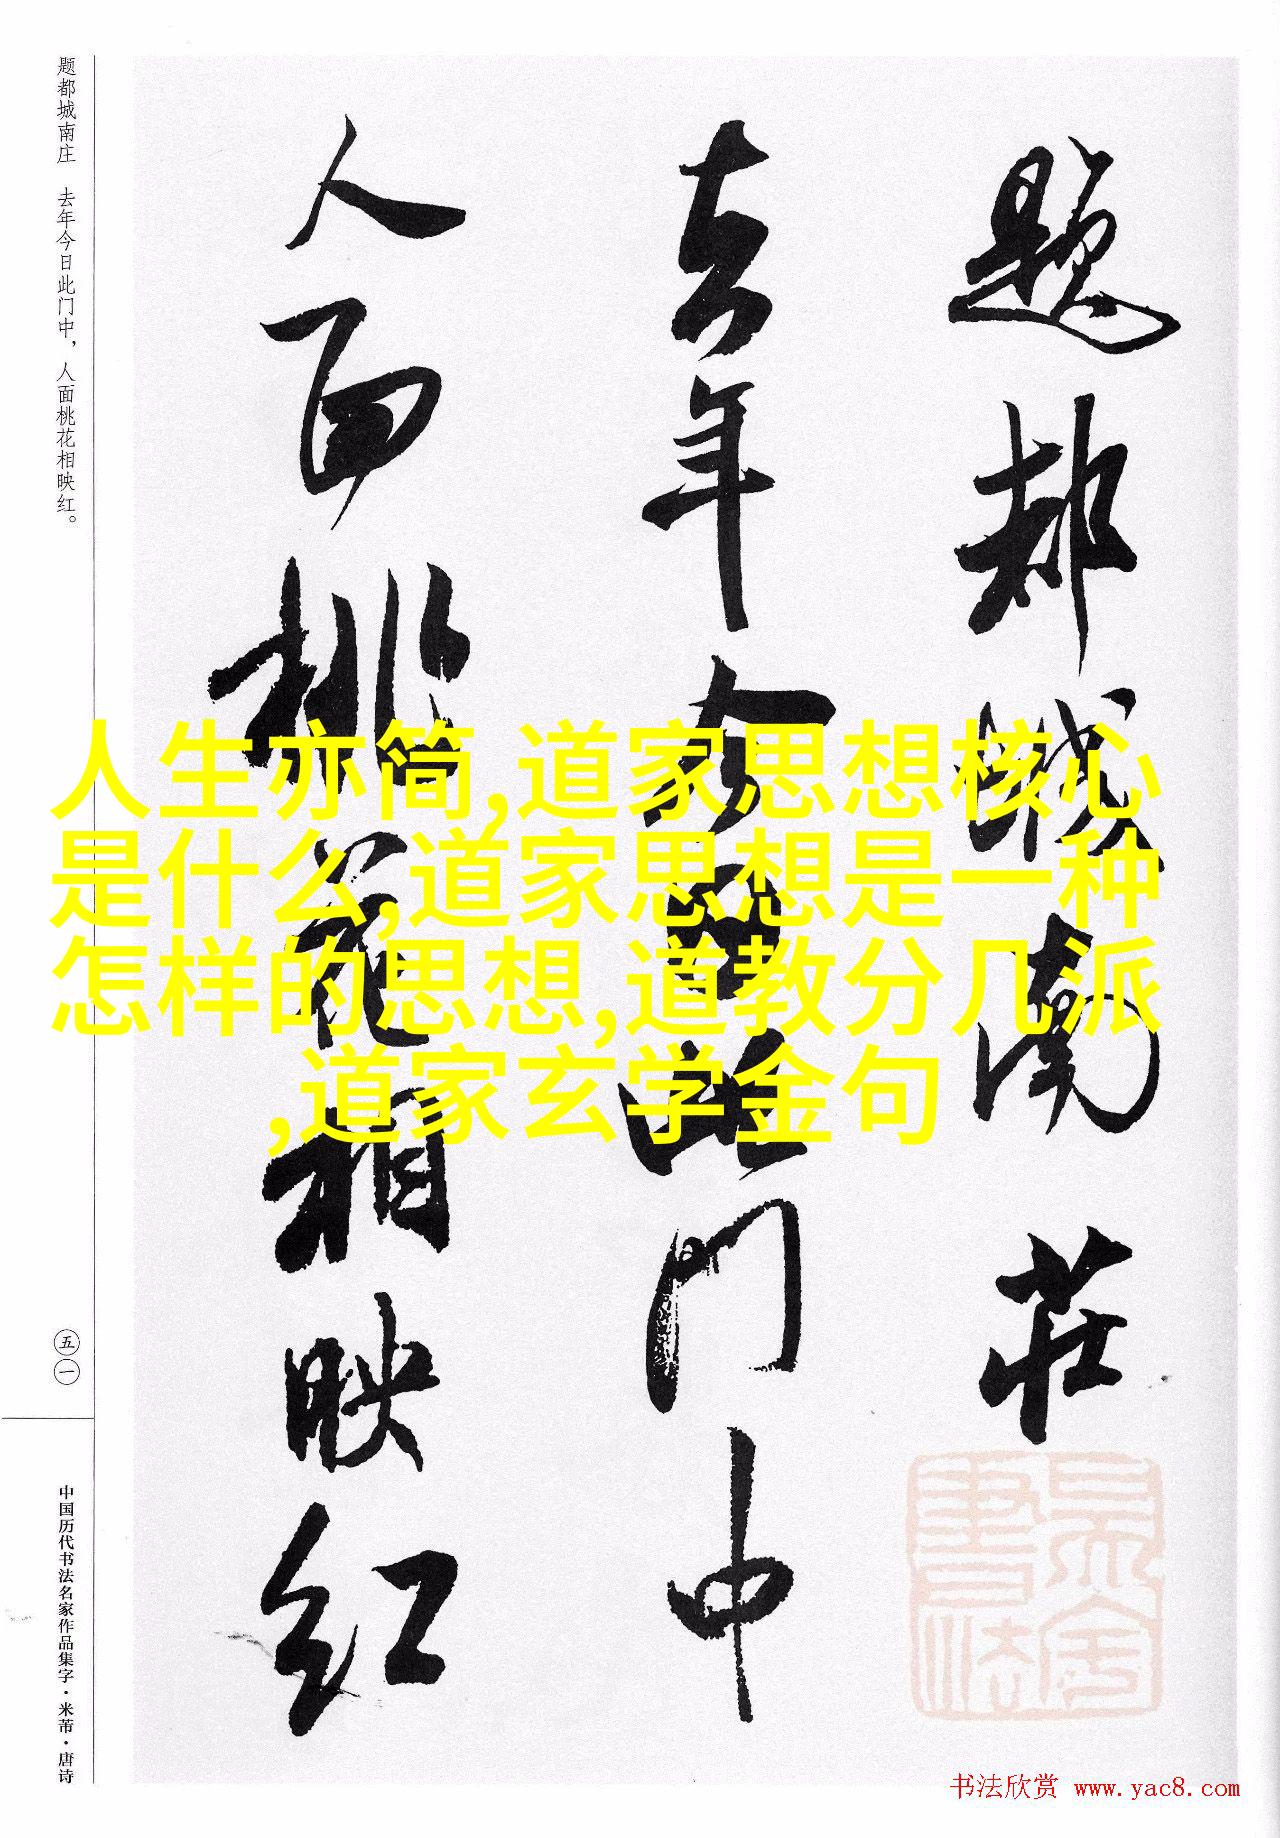 题都城南庄 去年今日此门中，人面桃花相映红。
題都城南莊
去年今日此门中
人面桃花相映红
人生亦简,道家思想核心
是什么,道家思想是一种
怎样的思想,道教分几派
,道家玄学金句
五一
中国历代书法名家作品集字·米芾·唐诗
书法欣赏 www.yac8.com